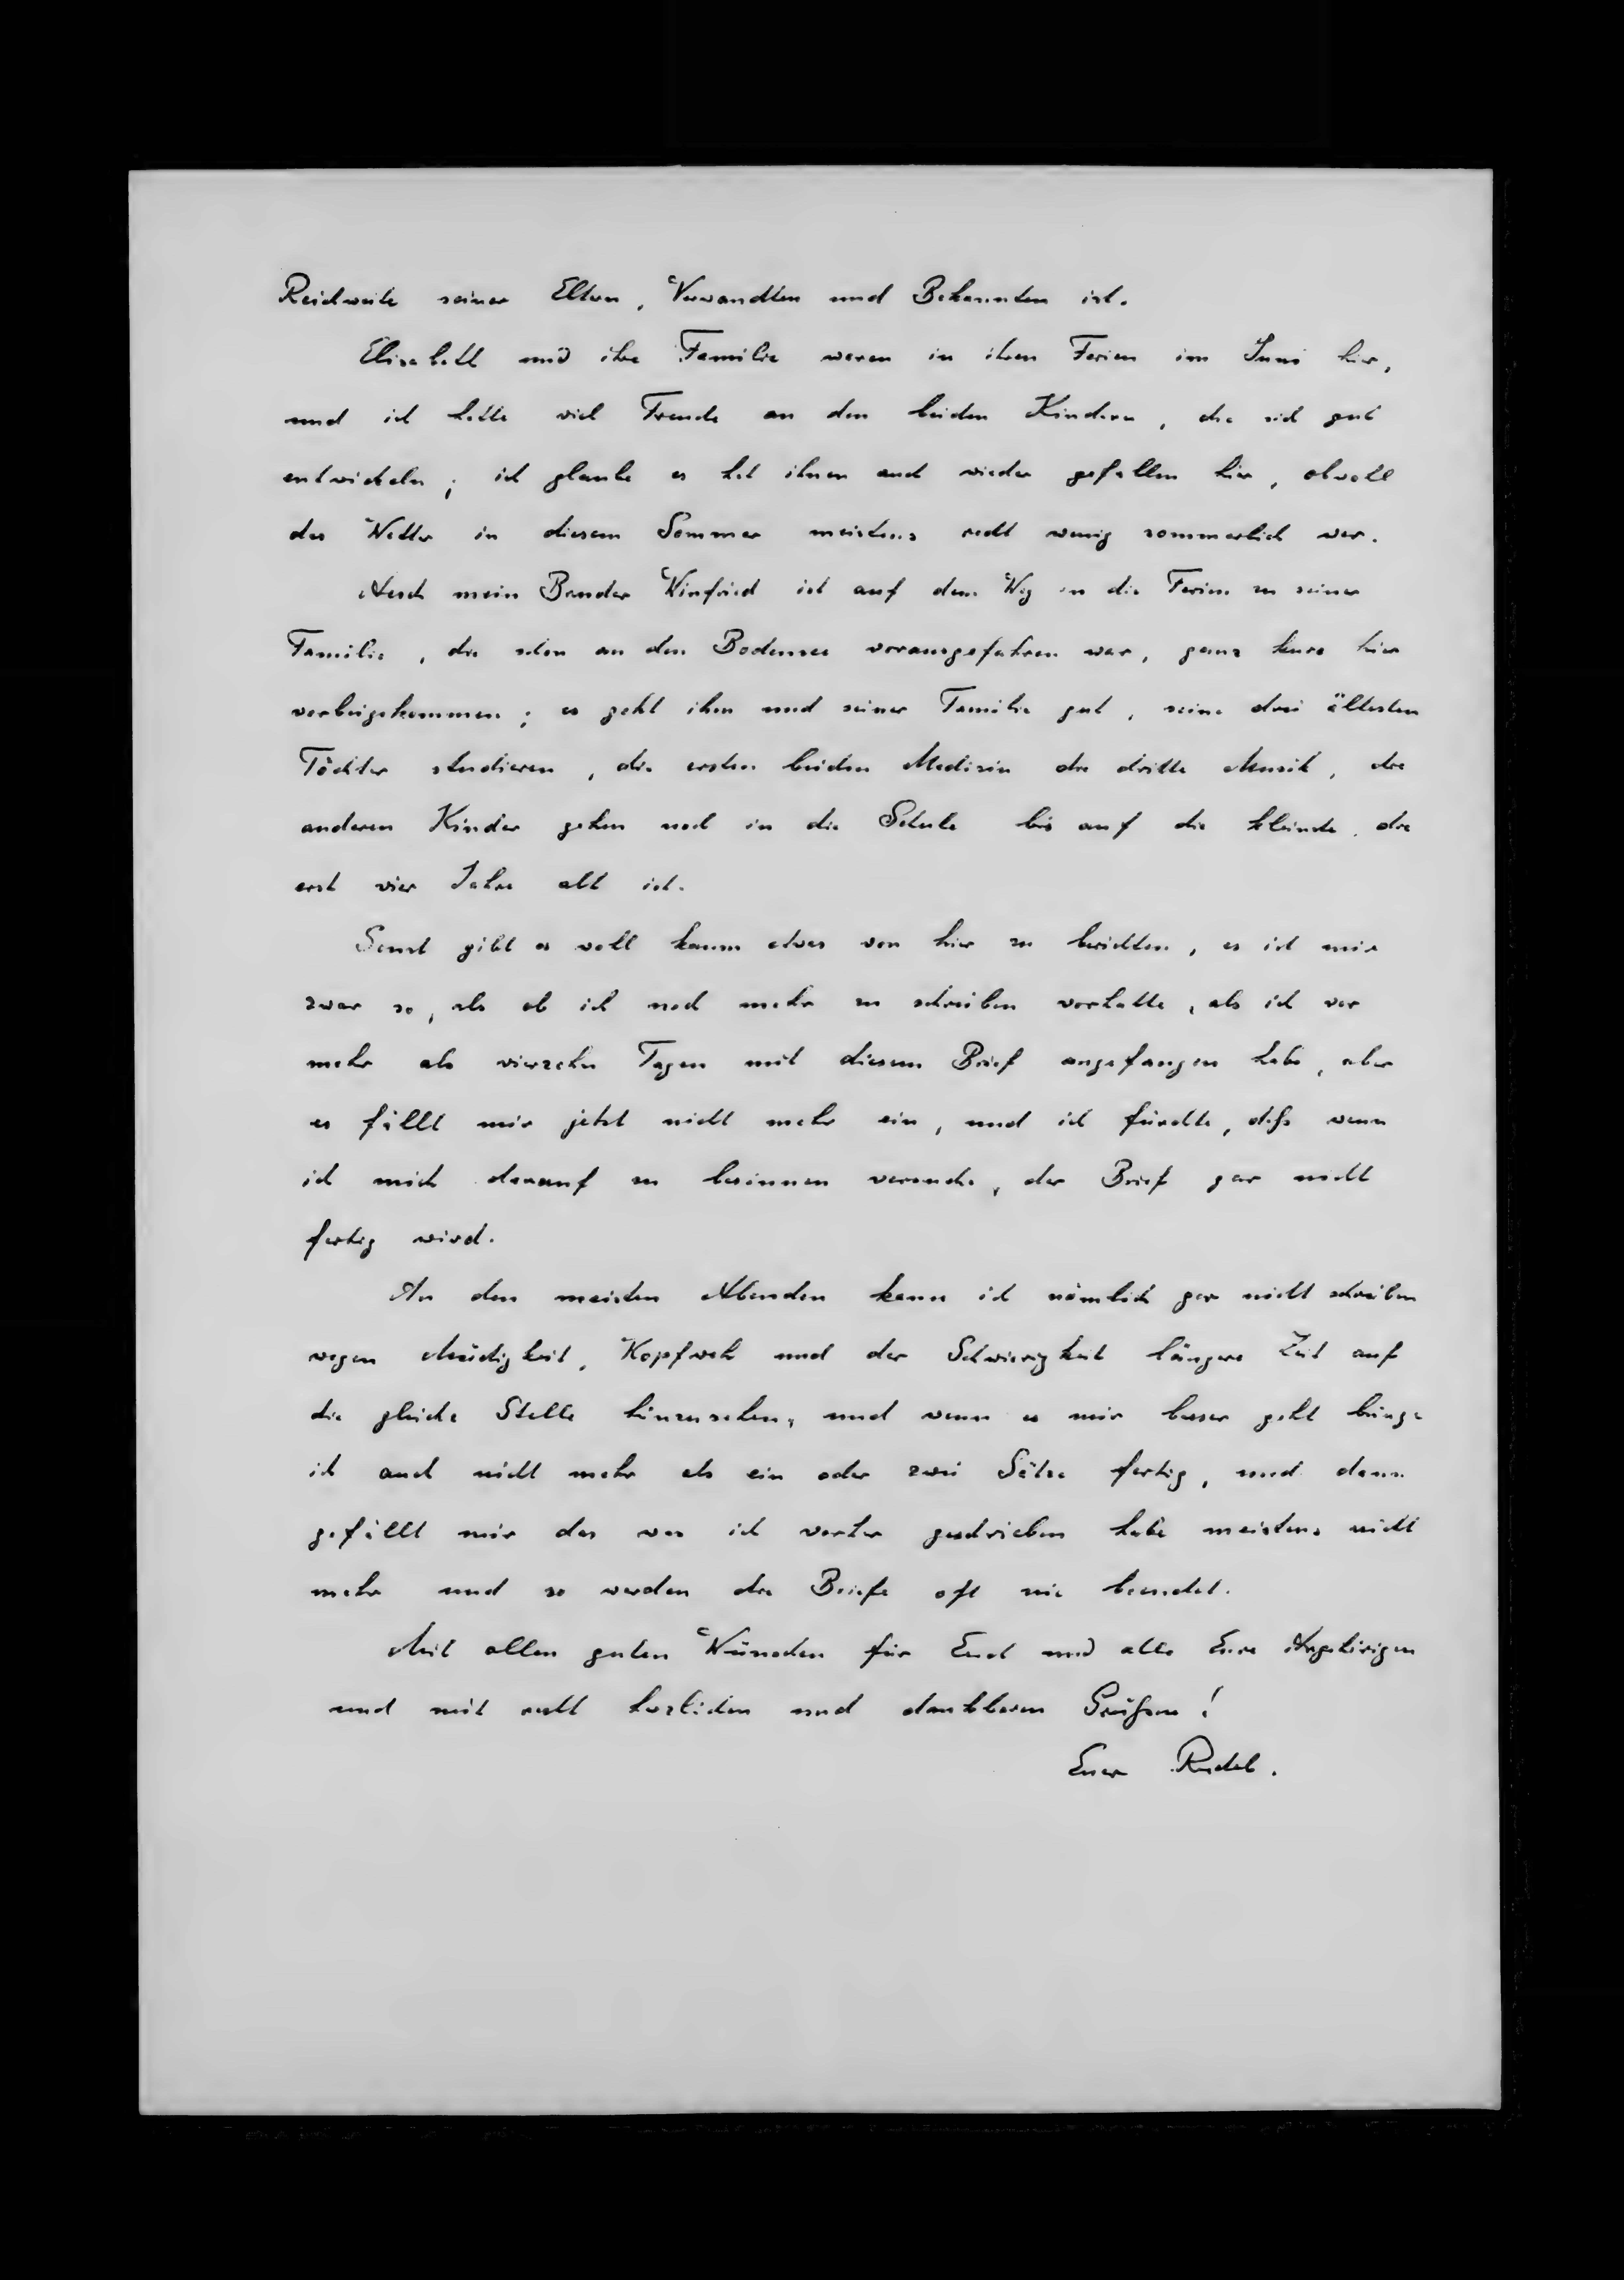 Reichweite seiner Eltern, Verwandten und Bekannten ist.
Elisabeth und ihre Familie waren in ihren Ferien im Juni hier,
und ich hatte viel Freude an den beiden Kindern, die sich gut
entwickeln; ich glaube es hat ihnen auch wieder gefallen hier, obwohl
das Wetter in diesem Sommer meistens recht wenig sommerlich war.
Auch mein Bruder Winfried ist auf dem Weg in die Ferien zu seiner
Familie, die schon an den Bodensee vorausgefahren war, ganz kurz hier
vorbeigekommen; es geht ihm und seiner Familie gut, seine drei ältesten
Töchter studieren, die ersten beiden Medizin die dritte Musik, die
anderen Kinder gehen noch in die Schule bis auf die kleinste, die
erst vier Jahre alt ist.
Sonst gibt es wohl kaum etwas von hier zu berichten, es ist mir
zwar so, als ob ich noch mehr zu schreiben vorhatte, als ich vor
mehr als vierzehn Tagen mit diesem Brief angefangen habe, aber
es fällt mir jetzt nicht mehr ein, und ich fürchte, daß wenn
ich mich darauf zu besinnen versuche, der Brief gar nicht
fertig wird.
An den meisten Abenden kann ich nämlich gar nicht schreiben
wegen Müdigkeit, Kopfweh und der Schwierigkeit längere Zeit auf
die gleiche Stelle hinzusehen, und wenn es mir besser geht bringe
ich auch nicht mehr als ein oder zwei Sätze fertig, und dann
gefällt mir das was ich vorher geschrieben habe meistens nicht
mehr und so werden die Briefe oft nie beendet.
Mit allen guten Wünschen für Euch und alle Eure Angehörigen
und mit recht herzlichen und dankbaren Grüßen!
Euer Rudel.